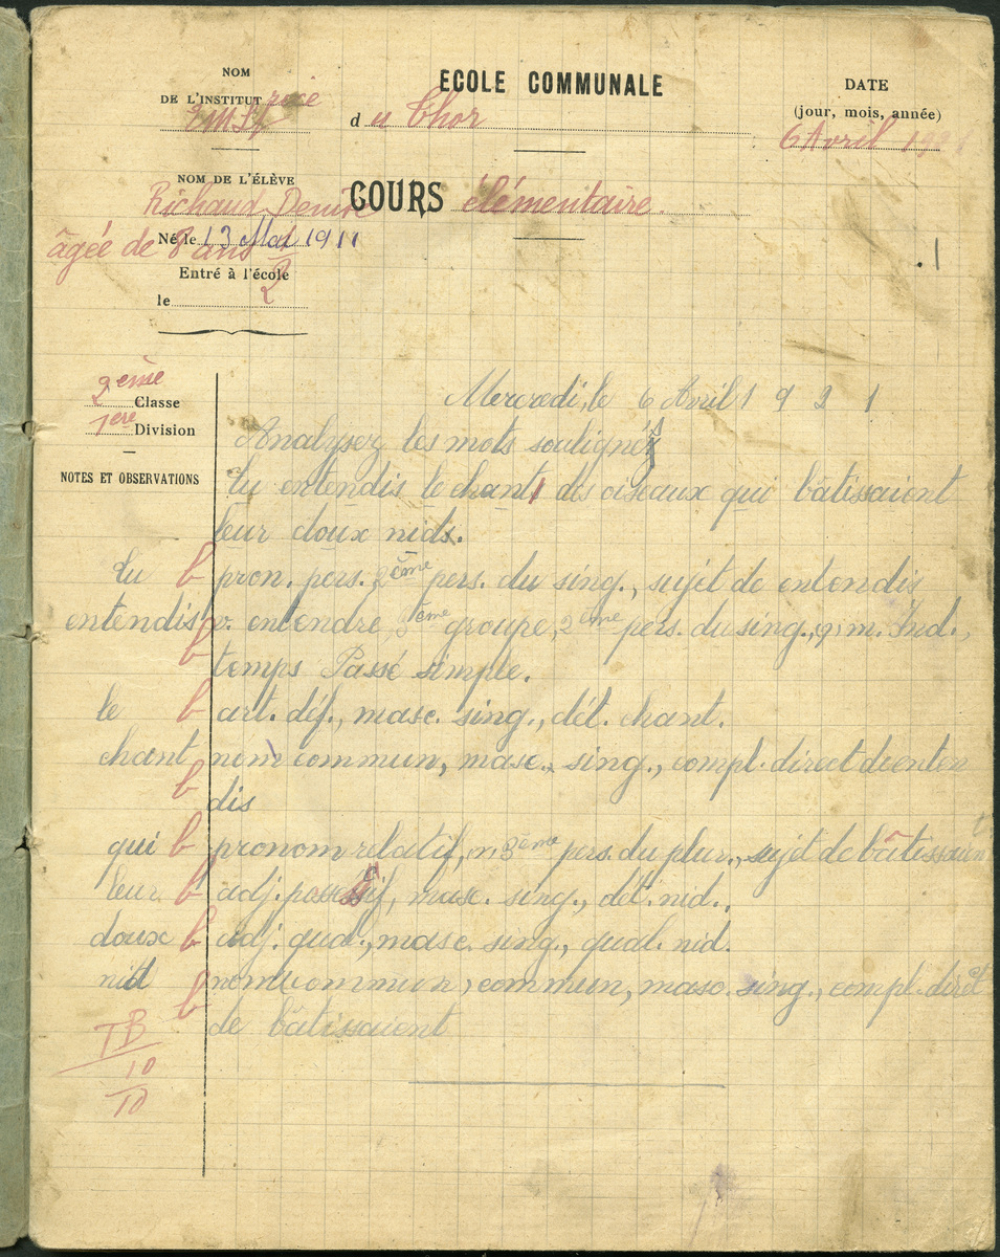 NOM
DE L'INSTITUT rice
ECOLE COMMUNALE
du Thor
DATE
(jour, mois, année)
6 Avril 19
NOM DE L'ÉLÈVE
Richaud Denise
COURS élémentaire.
Né le 13 Mai 1911
âgée de 8 ans 1/2
Entré à l'école
le
2ème Classe
1ère Division
NOTES ET OBSERVATIONS
Mercredi, le 6 Avril 1921
Analysez les mots soulignés
tu entendis le chant des oiseaux qui bâtissaient
leur doux nid.
tu b pron. pers. 2ème pers. du sing., sujet de entendis
entendis b v. entendre, 3ème groupe, 2ème pers. du sing., m. Ind.,
temps Passé simple.
le b art. déf., masc. sing., dét. chant.
chant b nom commun, masc. sing., compl. direct de enten
dis
qui b pronom relatif, 3ème pers. du plur., sujet de bâtissaient
leur b adj. possessif, masc. sing., dét. nid.
doux b adj. qual., masc. sing., qual. nid.
nid b nom commun, commun, masc. sing., compl. direct
de bâtissaient
TB
10
10